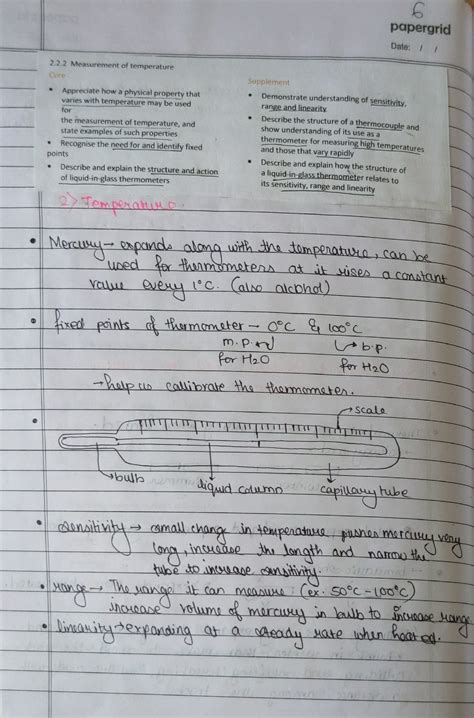 6
papergrid
Date: / /
2.2.2 Measurement of temperature
Core
• Appreciate how a physical property that
varies with temperature may be used
for
the measurement of temperature, and
state examples of such properties
• Recognise the need for and identify fixed
points
• Describe and explain the structure and action
of liquid-in-glass thermometers
Supplement
• Demonstrate understanding of sensitivity,
range and linearity
• Describe the structure of a thermocouple and
show understanding of its use as a
thermometer for measuring high temperatures
and those that vary rapidly
• Describe and explain how the structure of
a liquid-in-glass thermometer relates to
its sensitivity, range and linearity
2) Temperature
• Mercury → expands along with the temperature, can be
used for thermometers at it rises a constant
value every 1°C. (also alcohol)
• fixed points of thermometer – 0°C & 100°C
m.p. b.p.
for H2O for H2O
→ help us callibrate the thermometer.
→ scale
→ bulb liquid column capillary tube
• sensitivity → small change in temperature pushes mercury very
long, increase the length and narrow the
tube to increase sensitivity.
• range → The range it can measure : (ex. 50°C – 100°C)
increase volume of mercury in bulb to increase range
• linearity → expanding at a steady rate when heated.